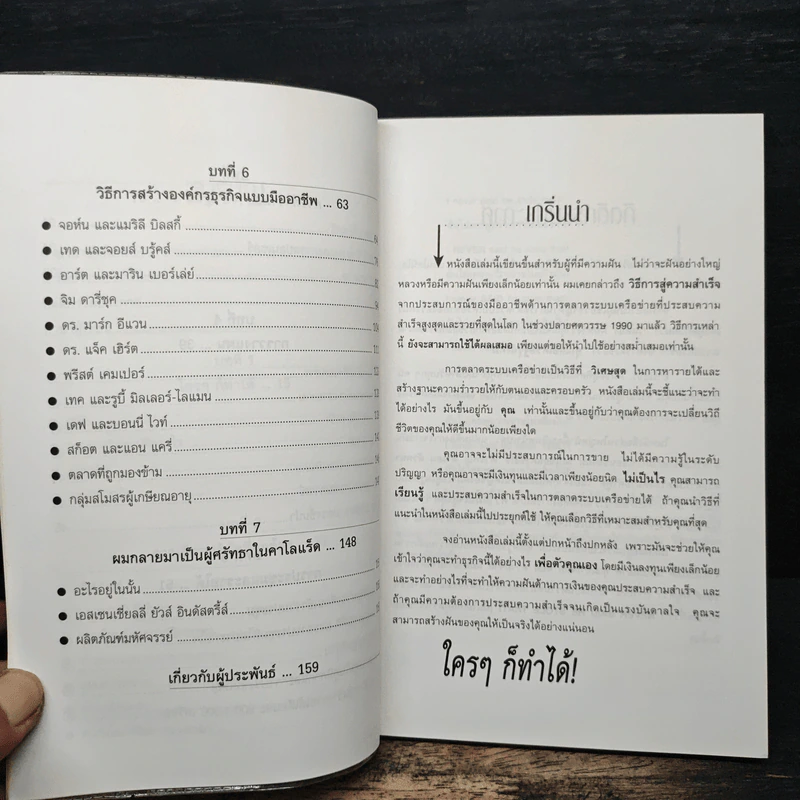 บทที่ 6
วิธีการสร้างองค์กรธุรกิจแบบมืออาชีพ ... 63
● จอห์น และแมริลี บิลสกี้
● เทด และจอยส์ บรู้คส์
● อาร์ต และมาริน เบอร์เล่ย์
● จิม ดารี่ชุค
● ดร. มาร์ก อีแวน
● ดร. แจ็ค เฮิร์ต
● พรีสต์ เคมเปอร์
● เทค และรูบี้ มิลเลอร์-ไลแมน
● เดฟ และบอนนี่ ไวท์
● สก็อต และแอน แครี่
● ตลาดที่ถูกมองข้าม
● กลุ่มสโมสรผู้เกษียณอายุ
บทที่ 7
ผมกลายมาเป็นผู้ศรัทธาในคาโลแร็ด ... 148
● อะไรอยู่ในนั้น
● เอสเซนเชี่ยลลี่ ยัวส์ อินดัสตรี้ส์
● ผลิตภัณฑ์มหัศจรรย์
เกี่ยวกับผู้ประพันธ์ ... 159
เกริ่นนำ
หนังสือเล่มนี้เขียนขึ้นสำหรับผู้ที่มีความฝัน ไม่ว่าจะฝันอย่างใหญ่
หลวงหรือมีความฝันเพียงเล็กน้อยเท่านั้น ผมเคยกล่าวถึง วิธีการสู่ความสำเร็จ
จากประสบการณ์ของมืออาชีพด้านการตลาดระบบเครือข่ายที่ประสบความ
สำเร็จสูงสุดและรวยที่สุดในโลก ในช่วงปลายศตวรรษ 1990 มาแล้ว วิธีการเหล่า
นี้ ยังจะสามารถใช้ได้ผลเสมอ เพียงแต่ขอให้นำไปใช้อย่างสม่ำเสมอเท่านั้น
การตลาดระบบเครือข่ายเป็นวิธีที่ วิเศษสุด ในการหารายได้และ
สร้างฐานะความร่ำรวยให้กับตนเองและครอบครัว หนังสือเล่มนี้จะชี้แนะว่าจะทำ
ได้อย่างไร มันขึ้นอยู่กับ คุณ เท่านั้นและขึ้นอยู่กับว่าคุณต้องการจะเปลี่ยนวิถี
ชีวิตของคุณให้ดีขึ้นมากน้อยเพียงใด
คุณอาจจะไม่มีประสบการณ์ในการขาย ไม่ได้มีความรู้ในระดับ
ปริญญา หรือคุณอาจจะมีเงินทุนและมีเวลาเพียงน้อยนิด ไม่เป็นไร คุณสามารถ
เรียนรู้ และประสบความสำเร็จในการตลาดระบบเครือข่ายได้ ถ้าคุณนำวิธีที่
แนะนำในหนังสือเล่มนี้ไปประยุกต์ใช้ ให้คุณเลือกวิธีที่เหมาะสมสำหรับคุณที่สุด
จงอ่านหนังสือเล่มนี้ตั้งแต่ปกหน้าถึงปกหลัง เพราะมันจะช่วยให้คุณ
เข้าใจว่าคุณจะทำธุรกิจนี้ได้อย่างไร เพื่อตัวคุณเอง โดยมีเงินลงทุนเพียงเล็กน้อย
และจะทำอย่างไรที่จะทำให้ความฝันด้านการเงินของคุณประสบความสำเร็จ และ
ถ้าคุณมีความต้องการประสบความสำเร็จจนเกิดเป็นแรงบันดาลใจ คุณจะ
สามารถสร้างฝันของคุณให้เป็นจริงได้อย่างแน่นอน
ใครๆ ก็ทำได้!